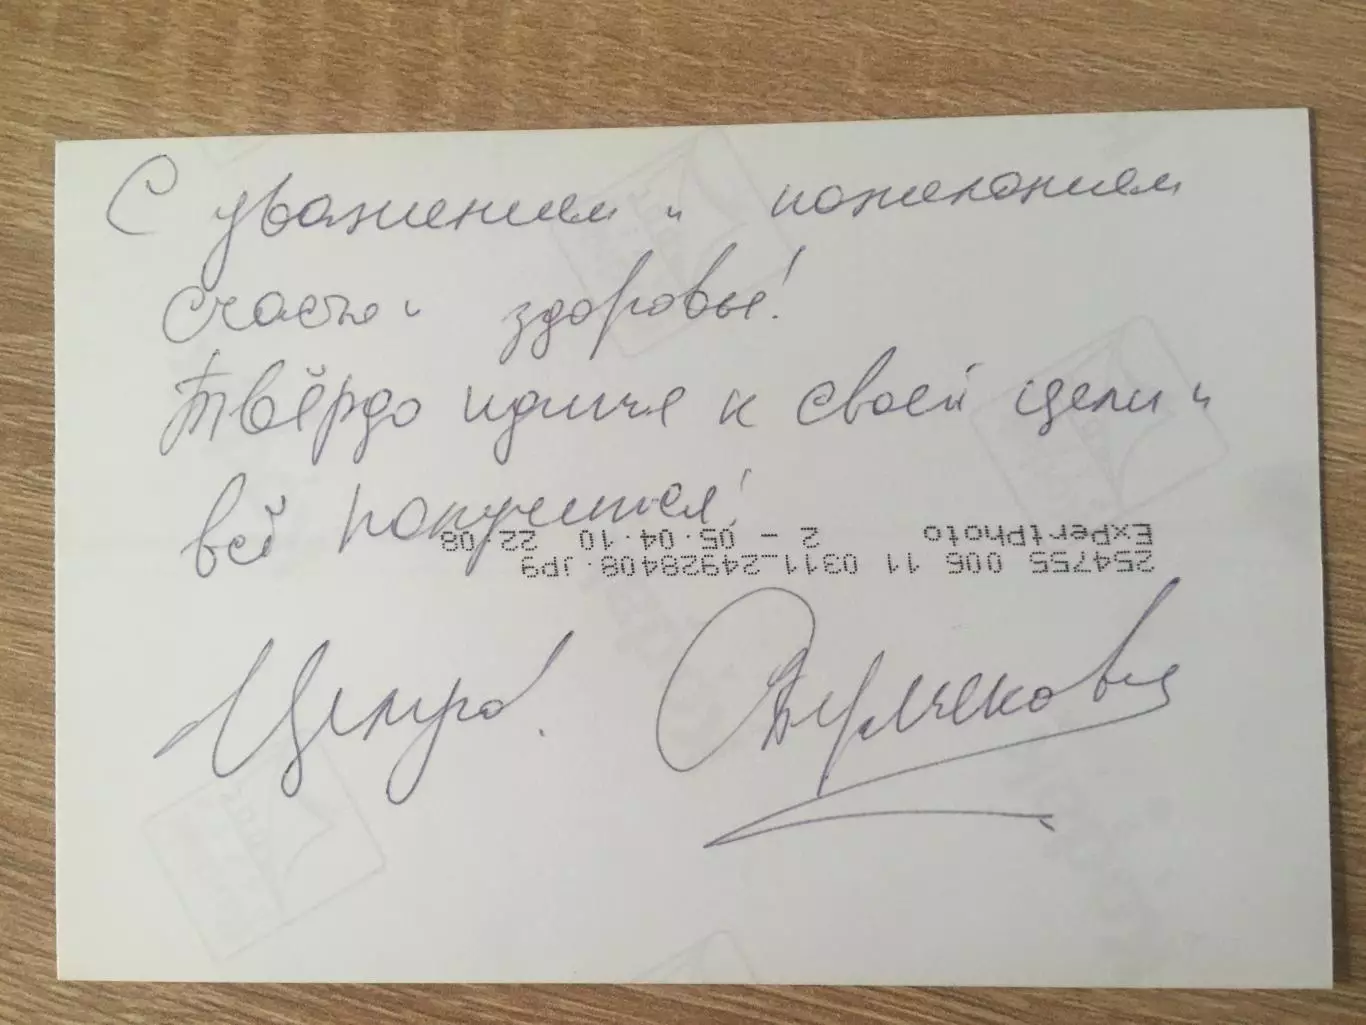 С уважением и пожеланием
счастья и здоровья!
Твёрдо идите к своей цели и
всё получится!
254755 006 11 0311_24928408.jpg
ExpertPhoto 2 - 05.04.10 22:08